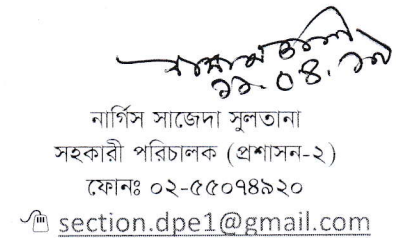 ১১.০৪.১৯
নার্গিস সাজেদা সুলতানা
সহকারী পরিচালক (প্রশাসন-২)
ফোনঃ ০২-৫৫০৭৪৯২০
section.dpe1@gmail.com